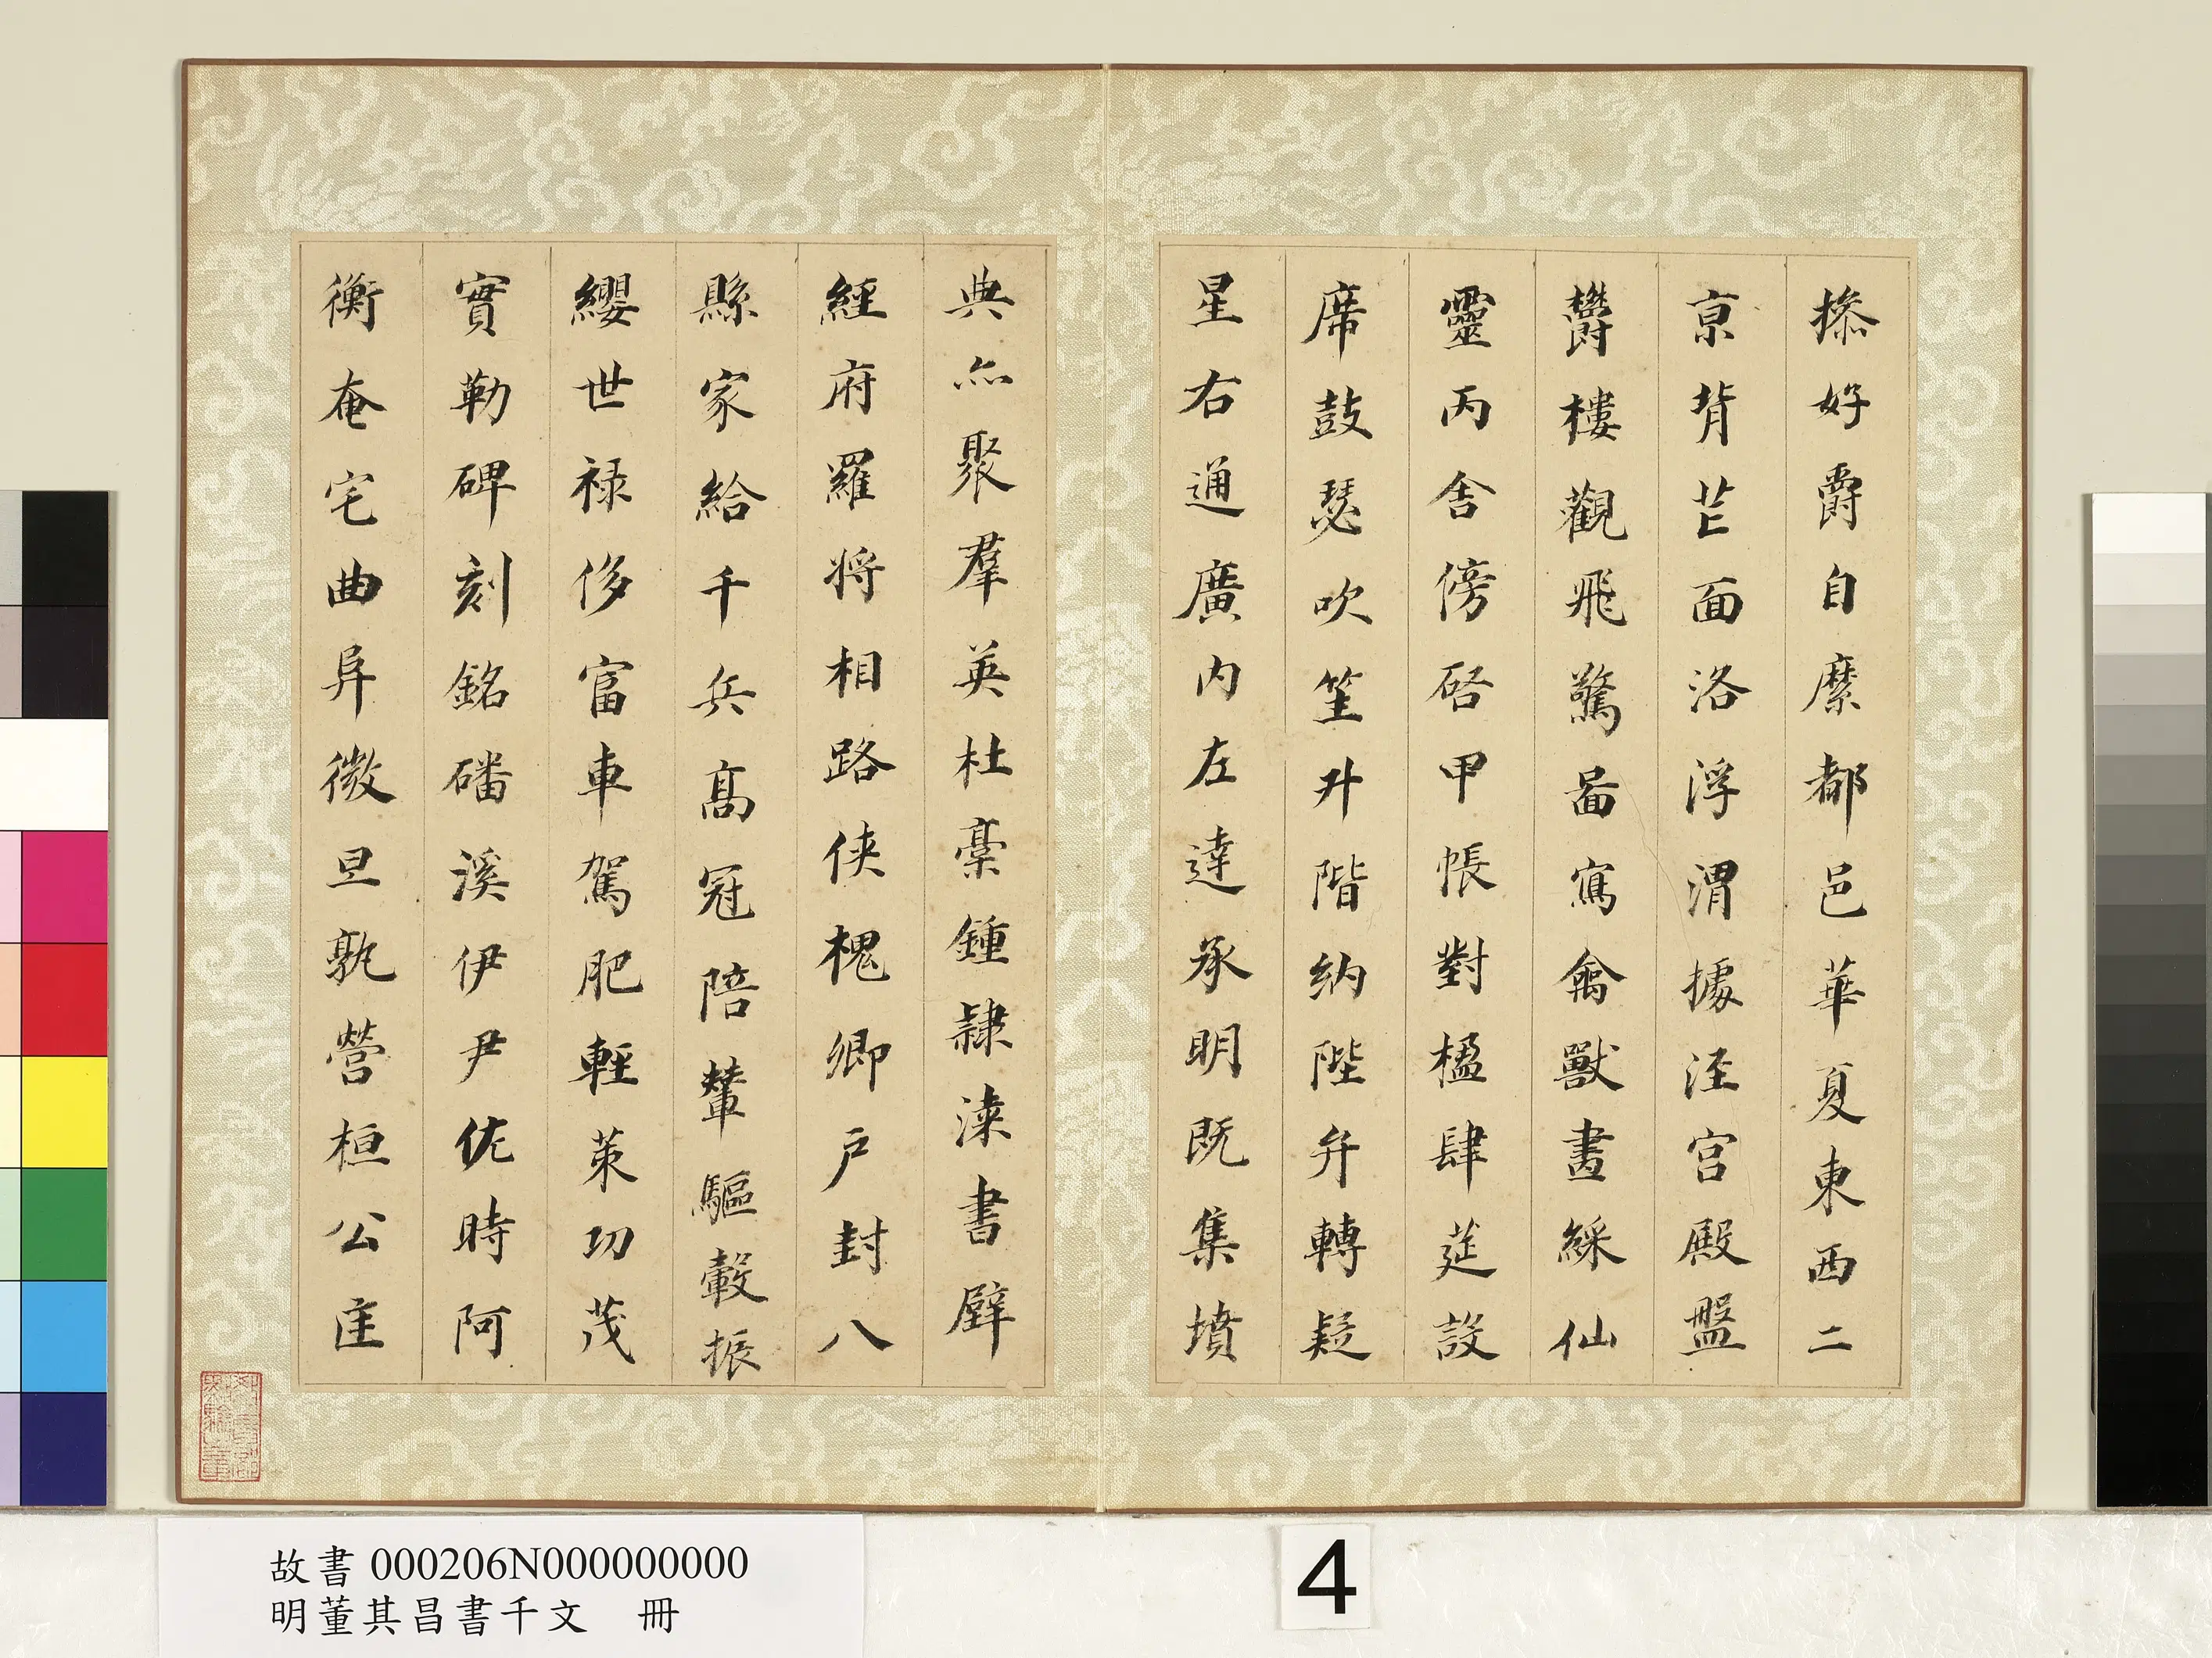 摻好爵自縻都邑華夏東西二
京背芒面洛浮渭據涇宮殿盤
欝樓觀飛驚啚寫禽獸畫綵仙
靈丙舍傍啓甲帳對楹肆筵設
席鼓瑟吹笙升階納陛弁轉疑
星右通廣內左達承明既集墳
典亦聚羣英杜稾鍾隸漆書壁
經府羅將相路俠槐卿戶封八
縣家給千兵高冠陪輦驅轂振
纓世禄侈富車駕肥輕策功茂
實勒碑刻銘磻溪伊尹佐時阿
衡奄宅曲阜微旦孰營桓公匡
故書000206N000000000
明董其昌書千文 冊
4